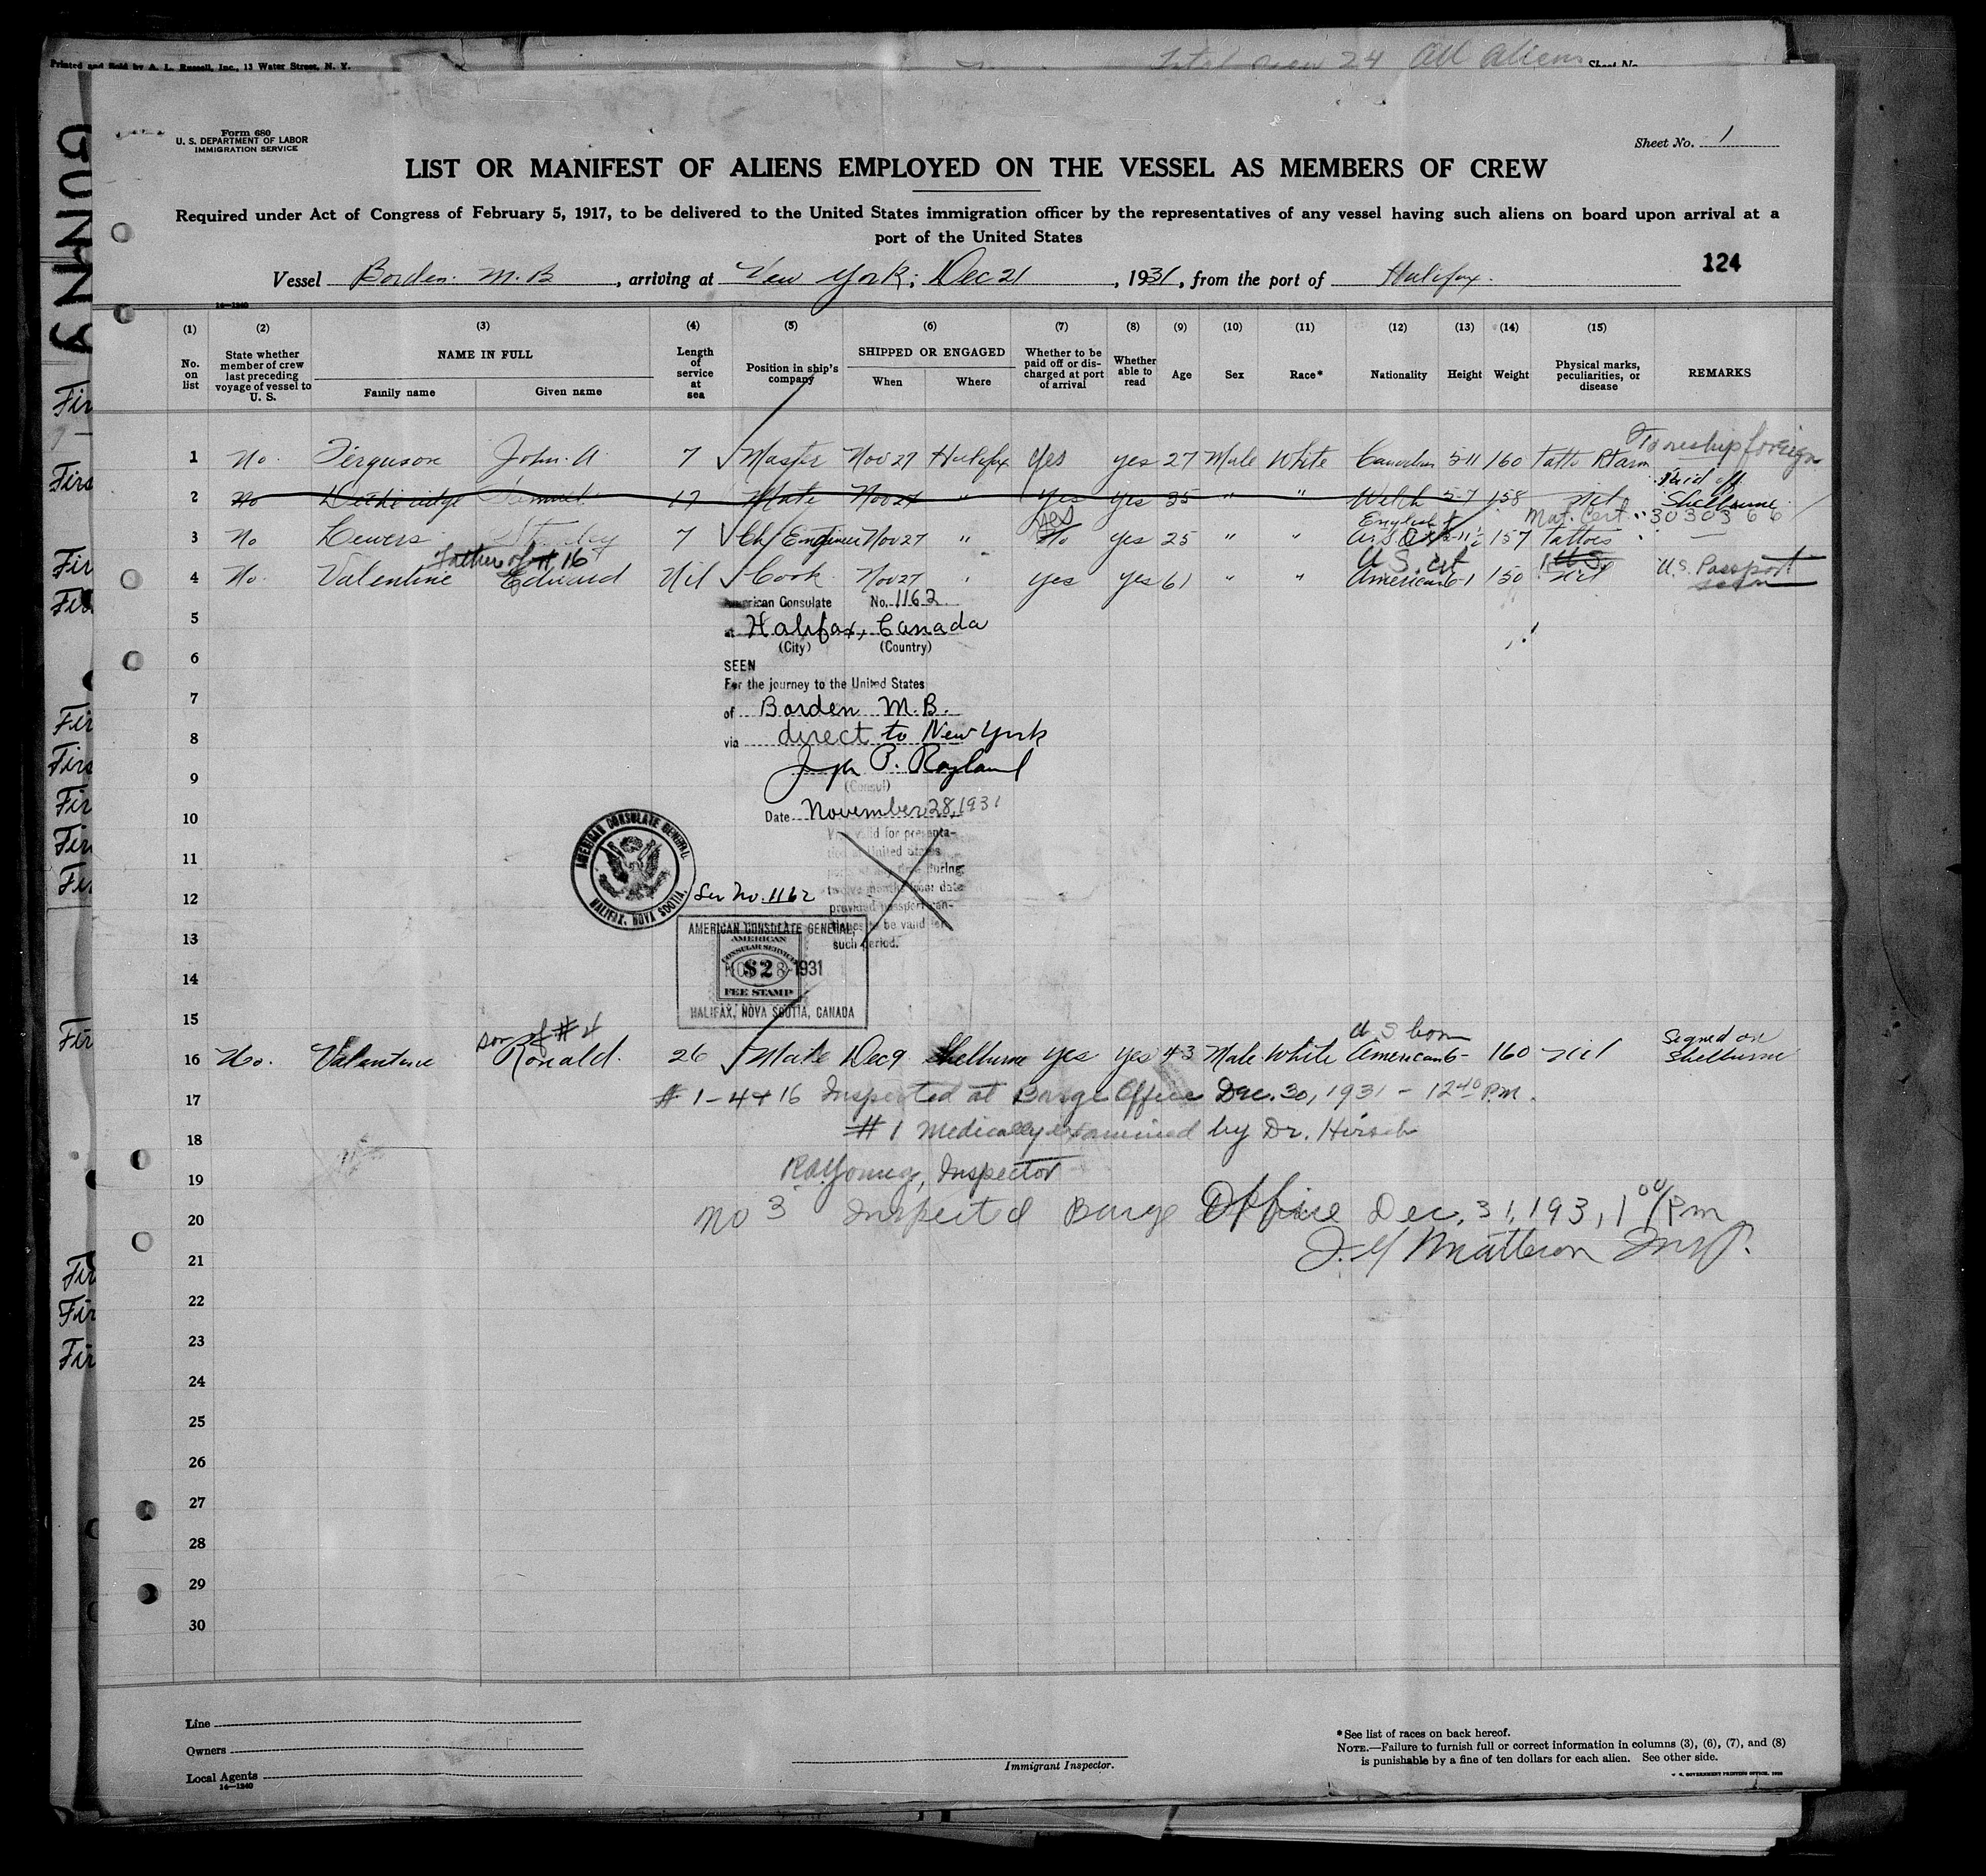 Printed and Sold by A. L. Russell, Inc., 13 Water Street, N. Y.
Total crew 24 All aliens Sheet No.
GUNNY
Form 680
U. S. DEPARTMENT OF LABOR
IMMIGRATION SERVICE
Sheet No. 1
LIST OR MANIFEST OF ALIENS EMPLOYED ON THE VESSEL AS MEMBERS OF CREW
Required under Act of Congress of February 5, 1917, to be delivered to the United States immigration officer by the representatives of any vessel having such aliens on board upon arrival at a
port of the United States
124
Vessel Borden M.B , arriving at New York; Dec 21 , 1931, from the port of Halifax.
14—1240
(1) (2) (3) (4) (5) (6) (7) (8) (9) (10) (11) (12) (13) (14) (15)
No. on list
State whether member of crew last preceding voyage of vessel to U. S.
NAME IN FULL
Family name Given name
Length of service at sea
Position in ship's company
SHIPPED OR ENGAGED
When Where
Whether to be paid off or discharged at port of arrival
Whether able to read
Age Sex Race* Nationality Height Weight
Physical marks, peculiarities, or disease
REMARKS
To reship foreign
1 No. Ferguson John. A 7 Master Nov 27 Halifax Yes yes 27 Male White Canadian 5-11 160 Tatto Rt arm
Paid off
2 No Samuel 17 Mate Nov 27 " Yes Yes 35 " " Welch 5-7 158 nil Shelburne
yes English Mat. Cert. 3030366
3 No Lewers Stanley 7 Ch/ Engineer Nov 27 " No yes 25 " " 157 Tattoes
Father of # 16 U.S. cit U.S.
4 No. Valentine Edward Nil Cook Nov 27 " yes yes 61 " " American 6-1 150 nil U.S. Passport seen
5
6
7
8
9
10
11
12
13
14
15
American Consulate No. 1162
at Halifax, Canada
(City) (Country)
SEEN
For the journey to the United States
of Borden M.B.
via direct to New York
P. Ragland
(Consul)
Date November 28, 1931
Visa valid for presentation at United States
during
twelve months from date
provided passport continues to be valid for
such period.
AMERICAN CONSULATE GENERAL
HALIFAX, NOVA SCOTIA.
Ser No. 1162
AMERICAN CONSULATE GENERAL,
AMERICAN
CONSULAR SERVICE
$2
NOV 28 1931
FEE STAMP
HALIFAX, NOVA SCOTIA, CANADA
son of # 4 U S born Signed on
16 No. Valentine Ronald. 26 Mate Dec 9 Shelburne yes yes 43 Male White American 6- 160 nil Shelburne
17 # 1-4 + 16 Inspected at Barge Office Dec. 30, 1931 - 12 40 P.M.
18 # 1 Medically examined by Dr. Hirsch
19 Young, Inspector
20 No 3 Inspected Barge Office Dec. 31, 193, 1 00/Pm
21 Matteson Insp.
22
23
24
25
26
27
28
29
30
Line
Owners
Local Agents
14—1240
Immigrant Inspector.
*See list of races on back hereof.
NOTE.—Failure to furnish full or correct information in columns (3), (6), (7), and (8)
is punishable by a fine of ten dollars for each alien. See other side.